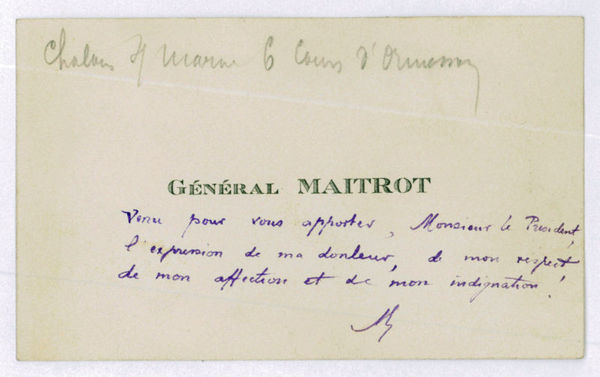 Chalons s/ Marne 6 Cours d'Ormesson
GÉNÉRAL MAITROT
Venu pour vous apporter, Monsieur le President,
l'expression de ma douleur, de mon respect
de mon affection et de mon indignation!
M